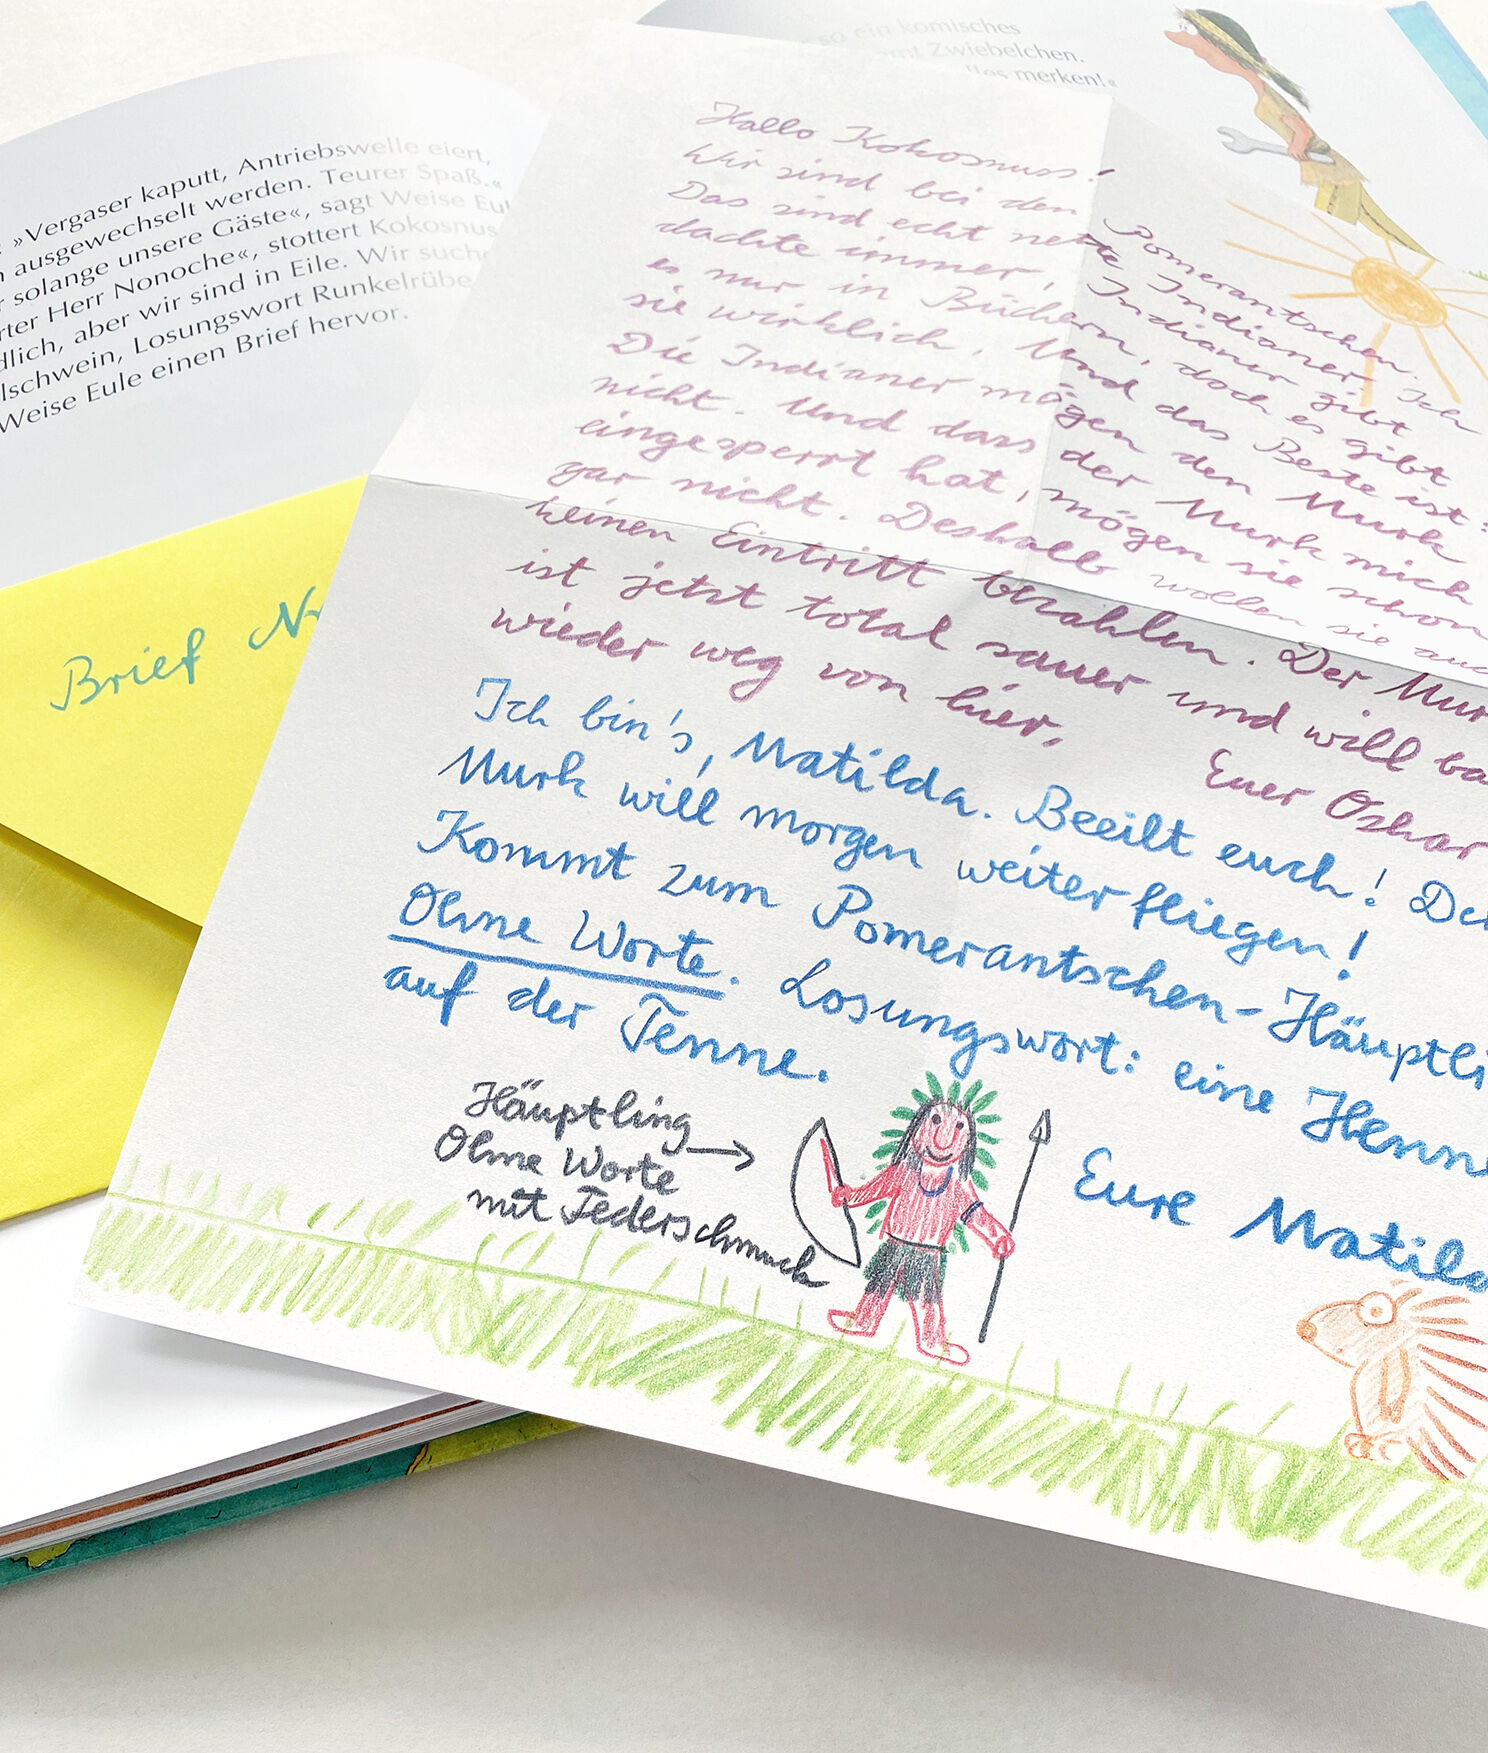 so ein komisches
Zwiebelchen.
merken!«
»Vergaser kaputt, Antriebswelle eiert,
ausgewechselt werden. Teurer Spaß.«
solange unsere Gäste«, sagt Weise Eul
rter Herr Nonoche«, stottert Kokosnus
dlich, aber wir sind in Eile. Wir suche
lschwein, Losungswort Runkelrübe
Weise Eule einen Brief hervor.
Brief N
Hallo Kokosnuss!
Wir sind bei den Pomerantschen.
Das sind echt nette Indianer. Ich
dachte immer, Indianer gibt
es nur in Büchern, doch es gibt
sie wirklich. Und das Beste ist:
Die Indianer mögen den Murk
nicht. Und dass der Murk mich
eingesperrt hat, mögen sie schon
gar nicht. Deshalb wollen sie auc
keinen Eintritt bezahlen. Der Mur
ist jetzt total sauer und will ba
wieder weg von hier,
Euer Oskar
Ich bin's, Matilda. Beeilt euch! De
Murk will morgen weiterfliegen!
Kommt zum Pomerantschen-Häuptli
Ohne Worte. Losungswort: eine Henne
auf der Tenne.
Eure Matild
Häuptling
Ohne Worte
mit Federschmuck